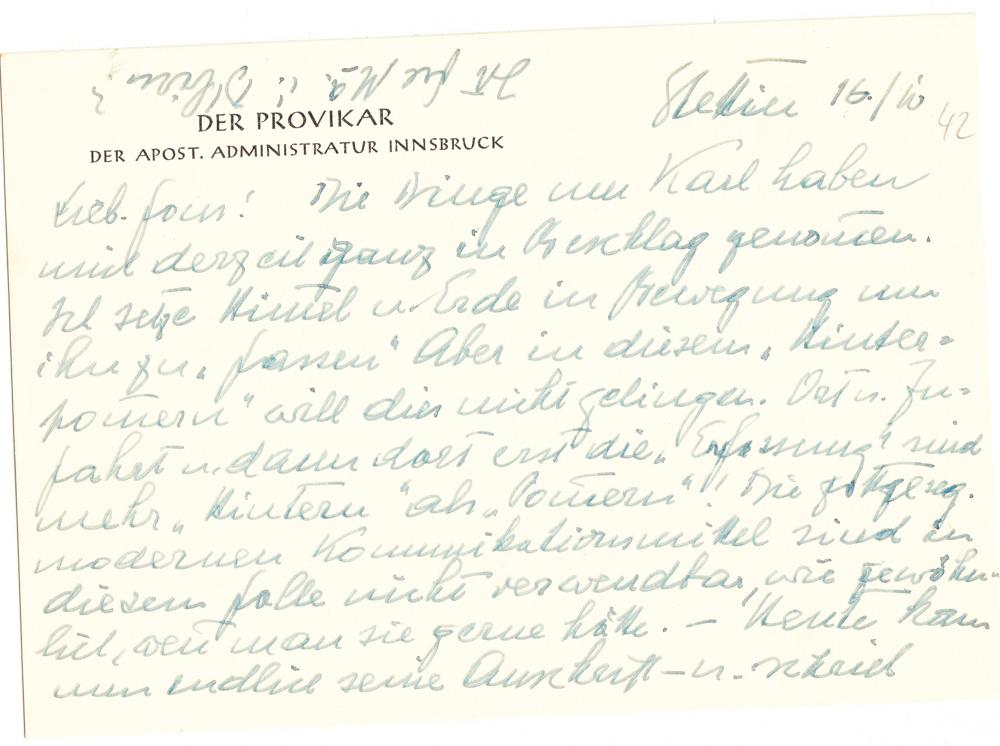 DER PROVIKAR
DER APOST. ADMINISTRATUR INNSBRUCK
Stettin 16./10
42
Lieb. Fons! Die Dinge um Karl haben
mich derzeit ganz in Beschlag genom̄en.
Ich setze Him̄el u. Erde in Bewegung um
ihn zu „fassen“ Aber in diesem „Hinter=
pom̄ern“ will dies nicht gelingen. Ort u. Zu=
fahrt u. dann dort erst die „Erfassung“ sind
mehr „Hintern“ als „Pom̄ern“!! Die gottgeseg.
modernen Kommunikationsmittel sind in
diesem Falle nicht verwendbar, wie gewöhn-
lich, wen̄ man sie gerne hätte. – Heute kam
nun endlich seine Anschrift – u. schrieb